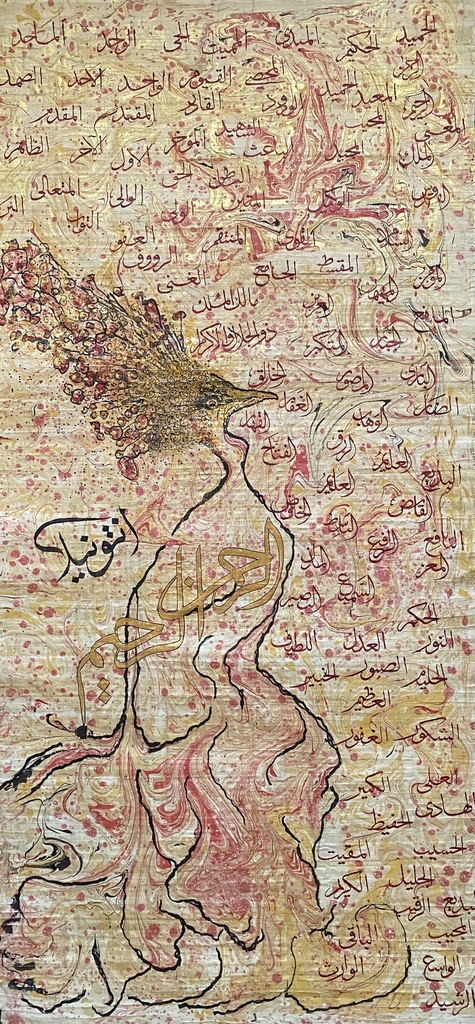 الحميد الحكيم المبدئ المميت الحي الواجد الماجد
المعيد المحصي القيوم الواحد الاحد الصمد
الودود القادر المقتدر المقدم
المجيد الشهيد المؤخر الاول الاخر الظاهر
الملك الباطن الحق الوالي المتعالي
الوكيل القوي التواب
المنتقم العفو الرؤوف
المقسط الجامع الغني
العزيز مالك الملك
المانع الجبار المتكبر ذو الجلال والاكرام
البارئ المصور الخالق
الضار الوهاب الغفار القهار
الرزاق الفتاح
البديع العليم
القابض الباسط الخافض
النافع الرافع
المعز المذل
السميع البصير
انتونيا
الرحمن
الرحيم
الحكم
النور العدل اللطيف
الحليم الصبور الخبير
العظيم
الشكور الغفور
العلي الكبير
الهادي الحفيظ
الحسيب المقيت
الجليل الكريم
الرقيب
المجيب الباقي
الواسع الوارث
الرشيد